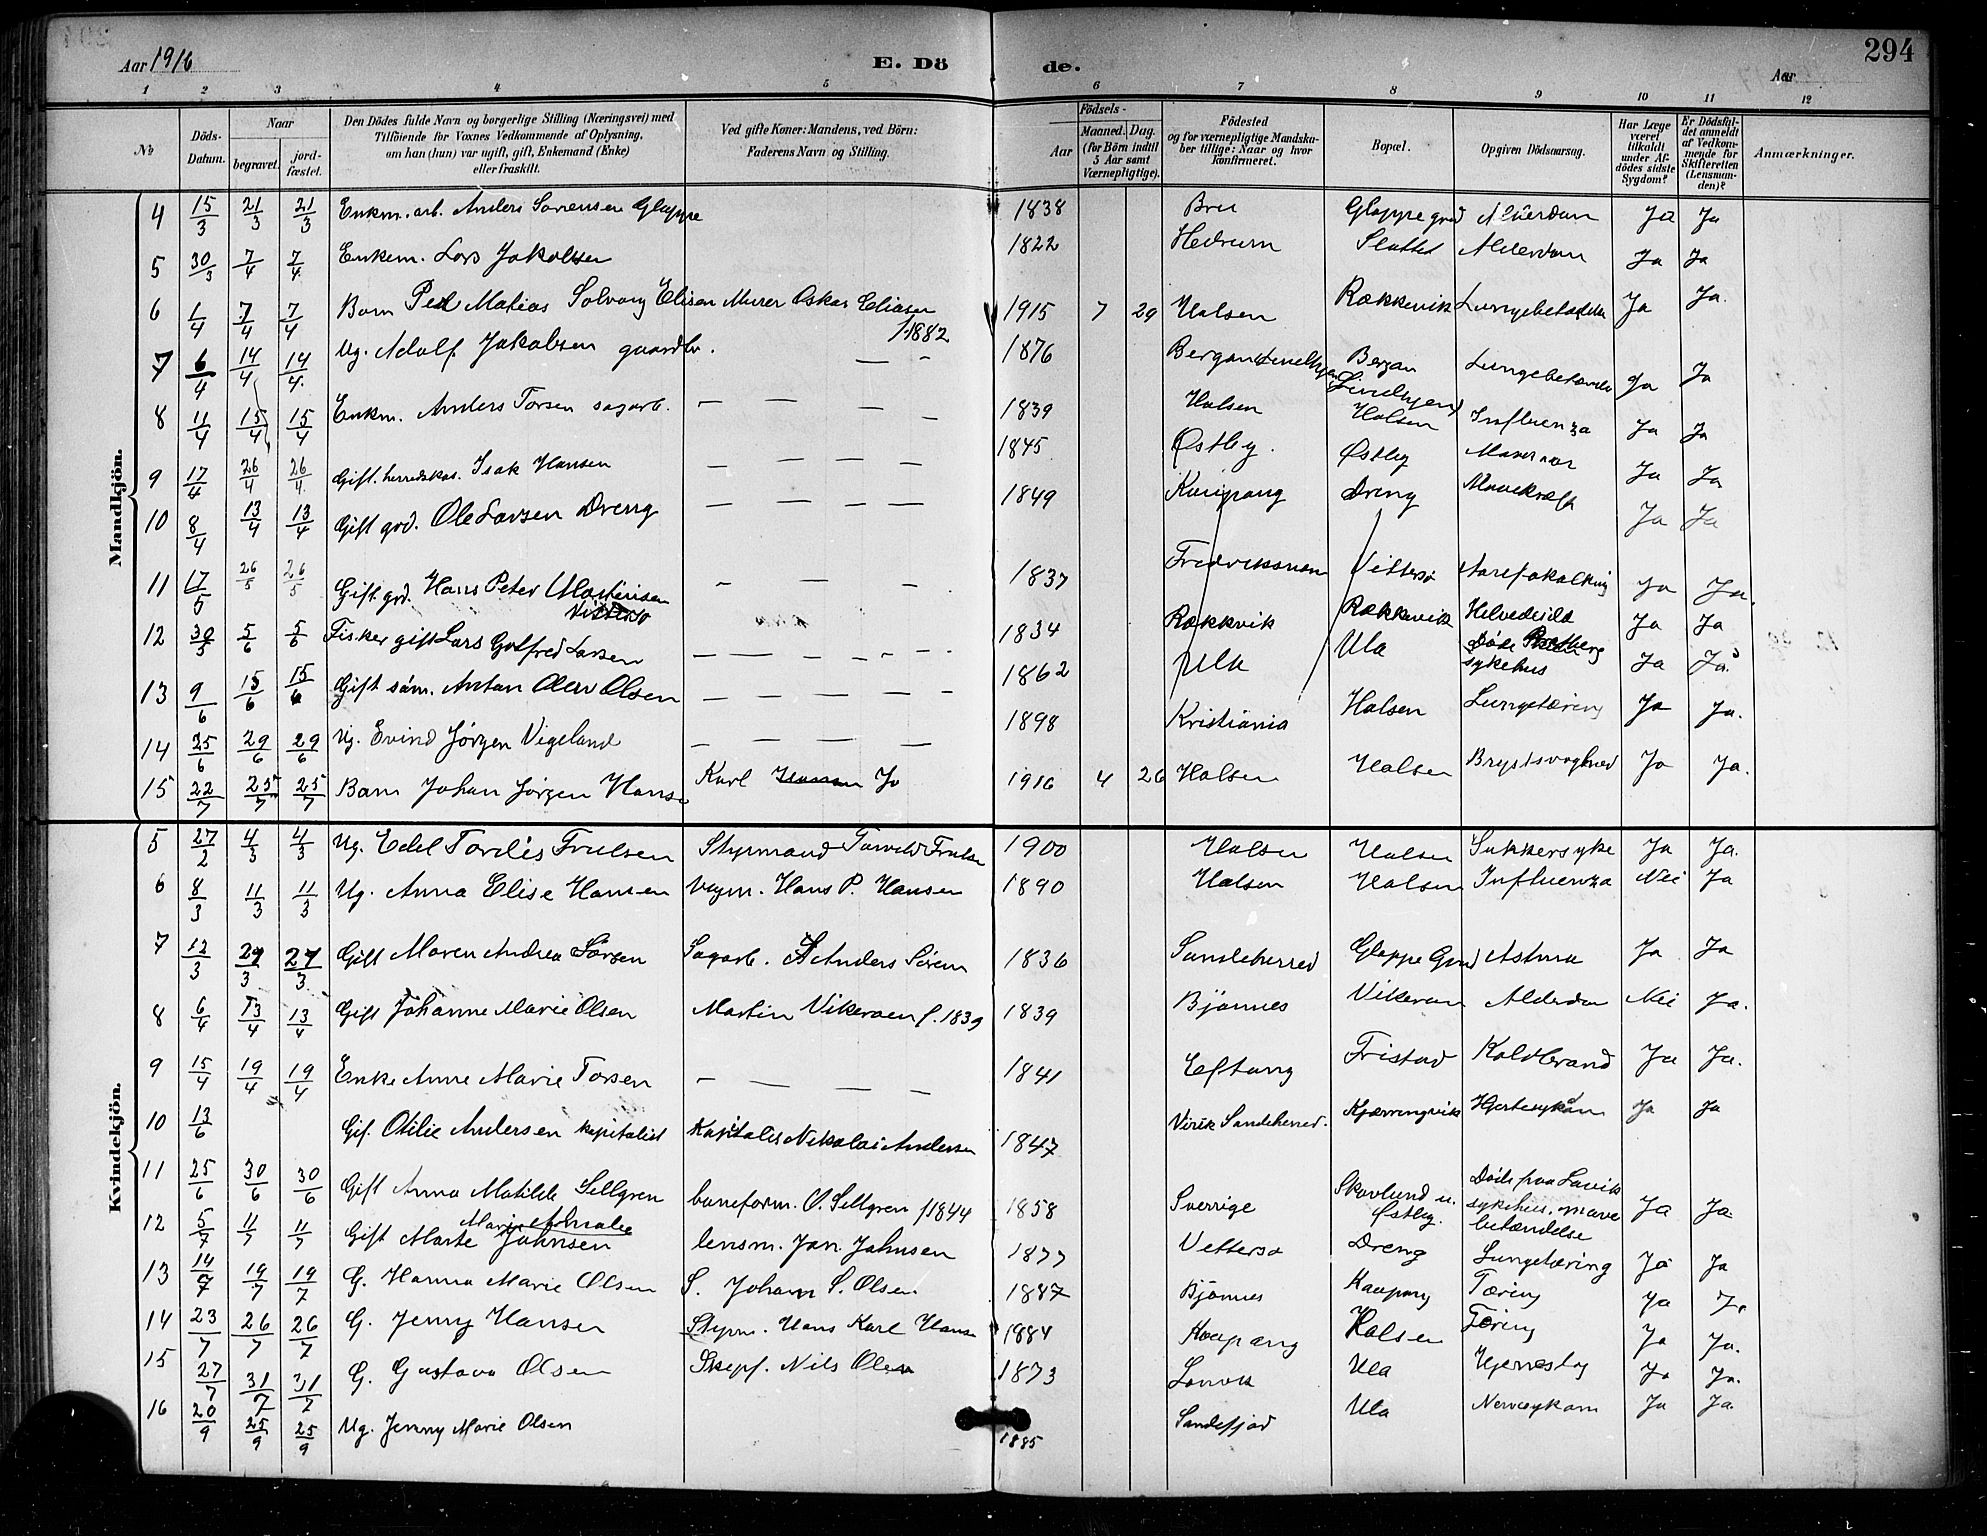 294
Aar 1916
E. Dö de.
Aar
1 2 3 4 5 6 7 8 9 10 11 12
№
Döds-Datum.
Naar begravet. jordfæstet.
Den Dödes fulde Navn og borgerlige Stilling (Næringsvei) med Tilföiende for Voxnes Vedkommende af Oplysning, om han (hun) var ugift, gift, Enkemand (Enke) eller fraskilt.
Ved gifte Koner: Mandens, ved Börn: Faderens Navn og Stilling.
Födsels-
Aar
Maaned. Dag. (for Börn indtil 5 Aar samt Værnepligtige).
Födested og for værnepligtige Mandskaber tillige: Naar og hvor konfirmeret.
Bopæl.
Opgiven Dödsaarsag.
Har Læge været tilkaldt under Afdödes sidste Sygdom?
Er Dödsfaldet anmeldt af Vedkommende for Skifteretten (Lensmanden)?
Anmærkninger.
Mandkjön.
4 15/3 21/3 21/3 Enkm. arb. Anders Sørensen Gloppe 1838 Bru Gloppe grd Alderdom Ja Ja
5 30/3 7/4 7/4 Enkem. Lars Jakobsen 1822 Hedrum Slottet Alderdom Ja Ja
6 1/4 7/4 7/4 Barn Peder Matias Solvang Elisen Murer Oskar Eliasen f.1882 1915 7 29 Halsen Rækkevik Lungebetændelse Ja Ja.
7 6/4 14/4 14/4 Ug. Adolf Jakobsen gaardbr. — — 1876 Bergan Lindhjem Bergan Lindhjem Lungebetændelse Ja Ja
8 11/4 15/4 15/4 Enkm. Anders Torsen sagarb. — — — — 1839 Halsen Halsen Influenza Ja Ja
9 17/4 26/4 26/4 Gift. herredskas. Isak Hansen — — — — 1845 Østby. Østby Ja Ja
10 8/4 13/4 13/4 Gift grd. Ole Larsen Dreng — — — — 1849 Kaupang Dreng Mavekræft Ja Ja
11 17/5 26/5 26/5 Gift grd. Hans Peter Martinsen Vittersø — — — 1837 Fredriksværn Vittersø Aareforkalkning Ja Ja.
12 30/5 5/6 5/6 Fisker gift Lars Gotfred Larsen — — — — — — 1834 Rækkvik Rækkevik Helvedeild Ja Ja
13 9/6 15/6 15/6 Gift søm. Anton Oliver Olsen — — — — 1862 Ula Ula Døde sykehus Ja Ja
14 25/6 29/6 29/6 Ug. Eivind Jørgen Vegeland — — — — 1898 Kristiania Halsen Lungetæring Ja Ja.
15 22/7 25/7 25/7 Barn Johan Jørgen Hansen Karl Jo 1916 4 26 Halsen Halsen Brystsvaghed Ja Ja.
Kvindekjön.
5 27/2 4/3 4/3 Ug. Edel Tordis Frulsen Styrmand Torvald Frulsen 1900 Halsen Halsen Sukkersyke Ja Ja.
6 8/3 11/3 11/3 Ug. Anna Elise Hansen Vegm. Hans P. Hansen 1890 Halsen Halsen Influenza Nei Ja
7 12/3 27/3 27/3 Gift Maren Andrea Sørsen Sagarb. Anders Sørsen 1836 Sandeherred Gloppe Grd Astma Ja Ja
8 6/4 13/4 13/4 Gift Johanne Marie Olsen Martin Vikeroen f. 1839 1839 Bjønnes Vikeroen Alderdom Nei Ja.
9 15/4 19/4 19/4 Enke Anne Marie Torsen — — — — 1841 Eftang Fristad Koldbrand Ja Ja.
10 13/6 Gif. Otilie Andersen kapitalist Kapitalist Nikolai Andersen 1847 Virik Sandeherred. Kjærringvik Hjertesykdom Ja Ja
11 25/6 30/6 30/6 Gift Anna Matilde Sellgren baneform. O. Sellgren f1844 1858 Sverrige Skovlund u. Østby. Døde paa Larvik sykehus, mavebetændelse Ja Ja
12 5/7 11/7 11/7 Gift Marte Marie Amalie Johnsen lensm. Jon. Johnsen 1877 Vettersø Dreng Lungetæring Ja Ja
13 14/7 19/7 19/7 G. Hanna Marie Olsen S. Johann S. Olsen 1887 Bjønnes Kaupang Tæring Ja Ja
14 23/7 26/7 26/7 G. Jenny Hansen Styrm. Hans Karl Hansen 1884 Kaupang Halsen Tæring Ja Ja.
15 27/7 31/7 31/7 G. Gustava Olsen Skipf. Nils Olsen 1873 Larvik Ula Hjerneslag Ja Ja.
16 20/9 25/9 25/9 Ug. Jenny Marie Olsen 1885 Sandefjord Ula Nervesykdom Ja Ja